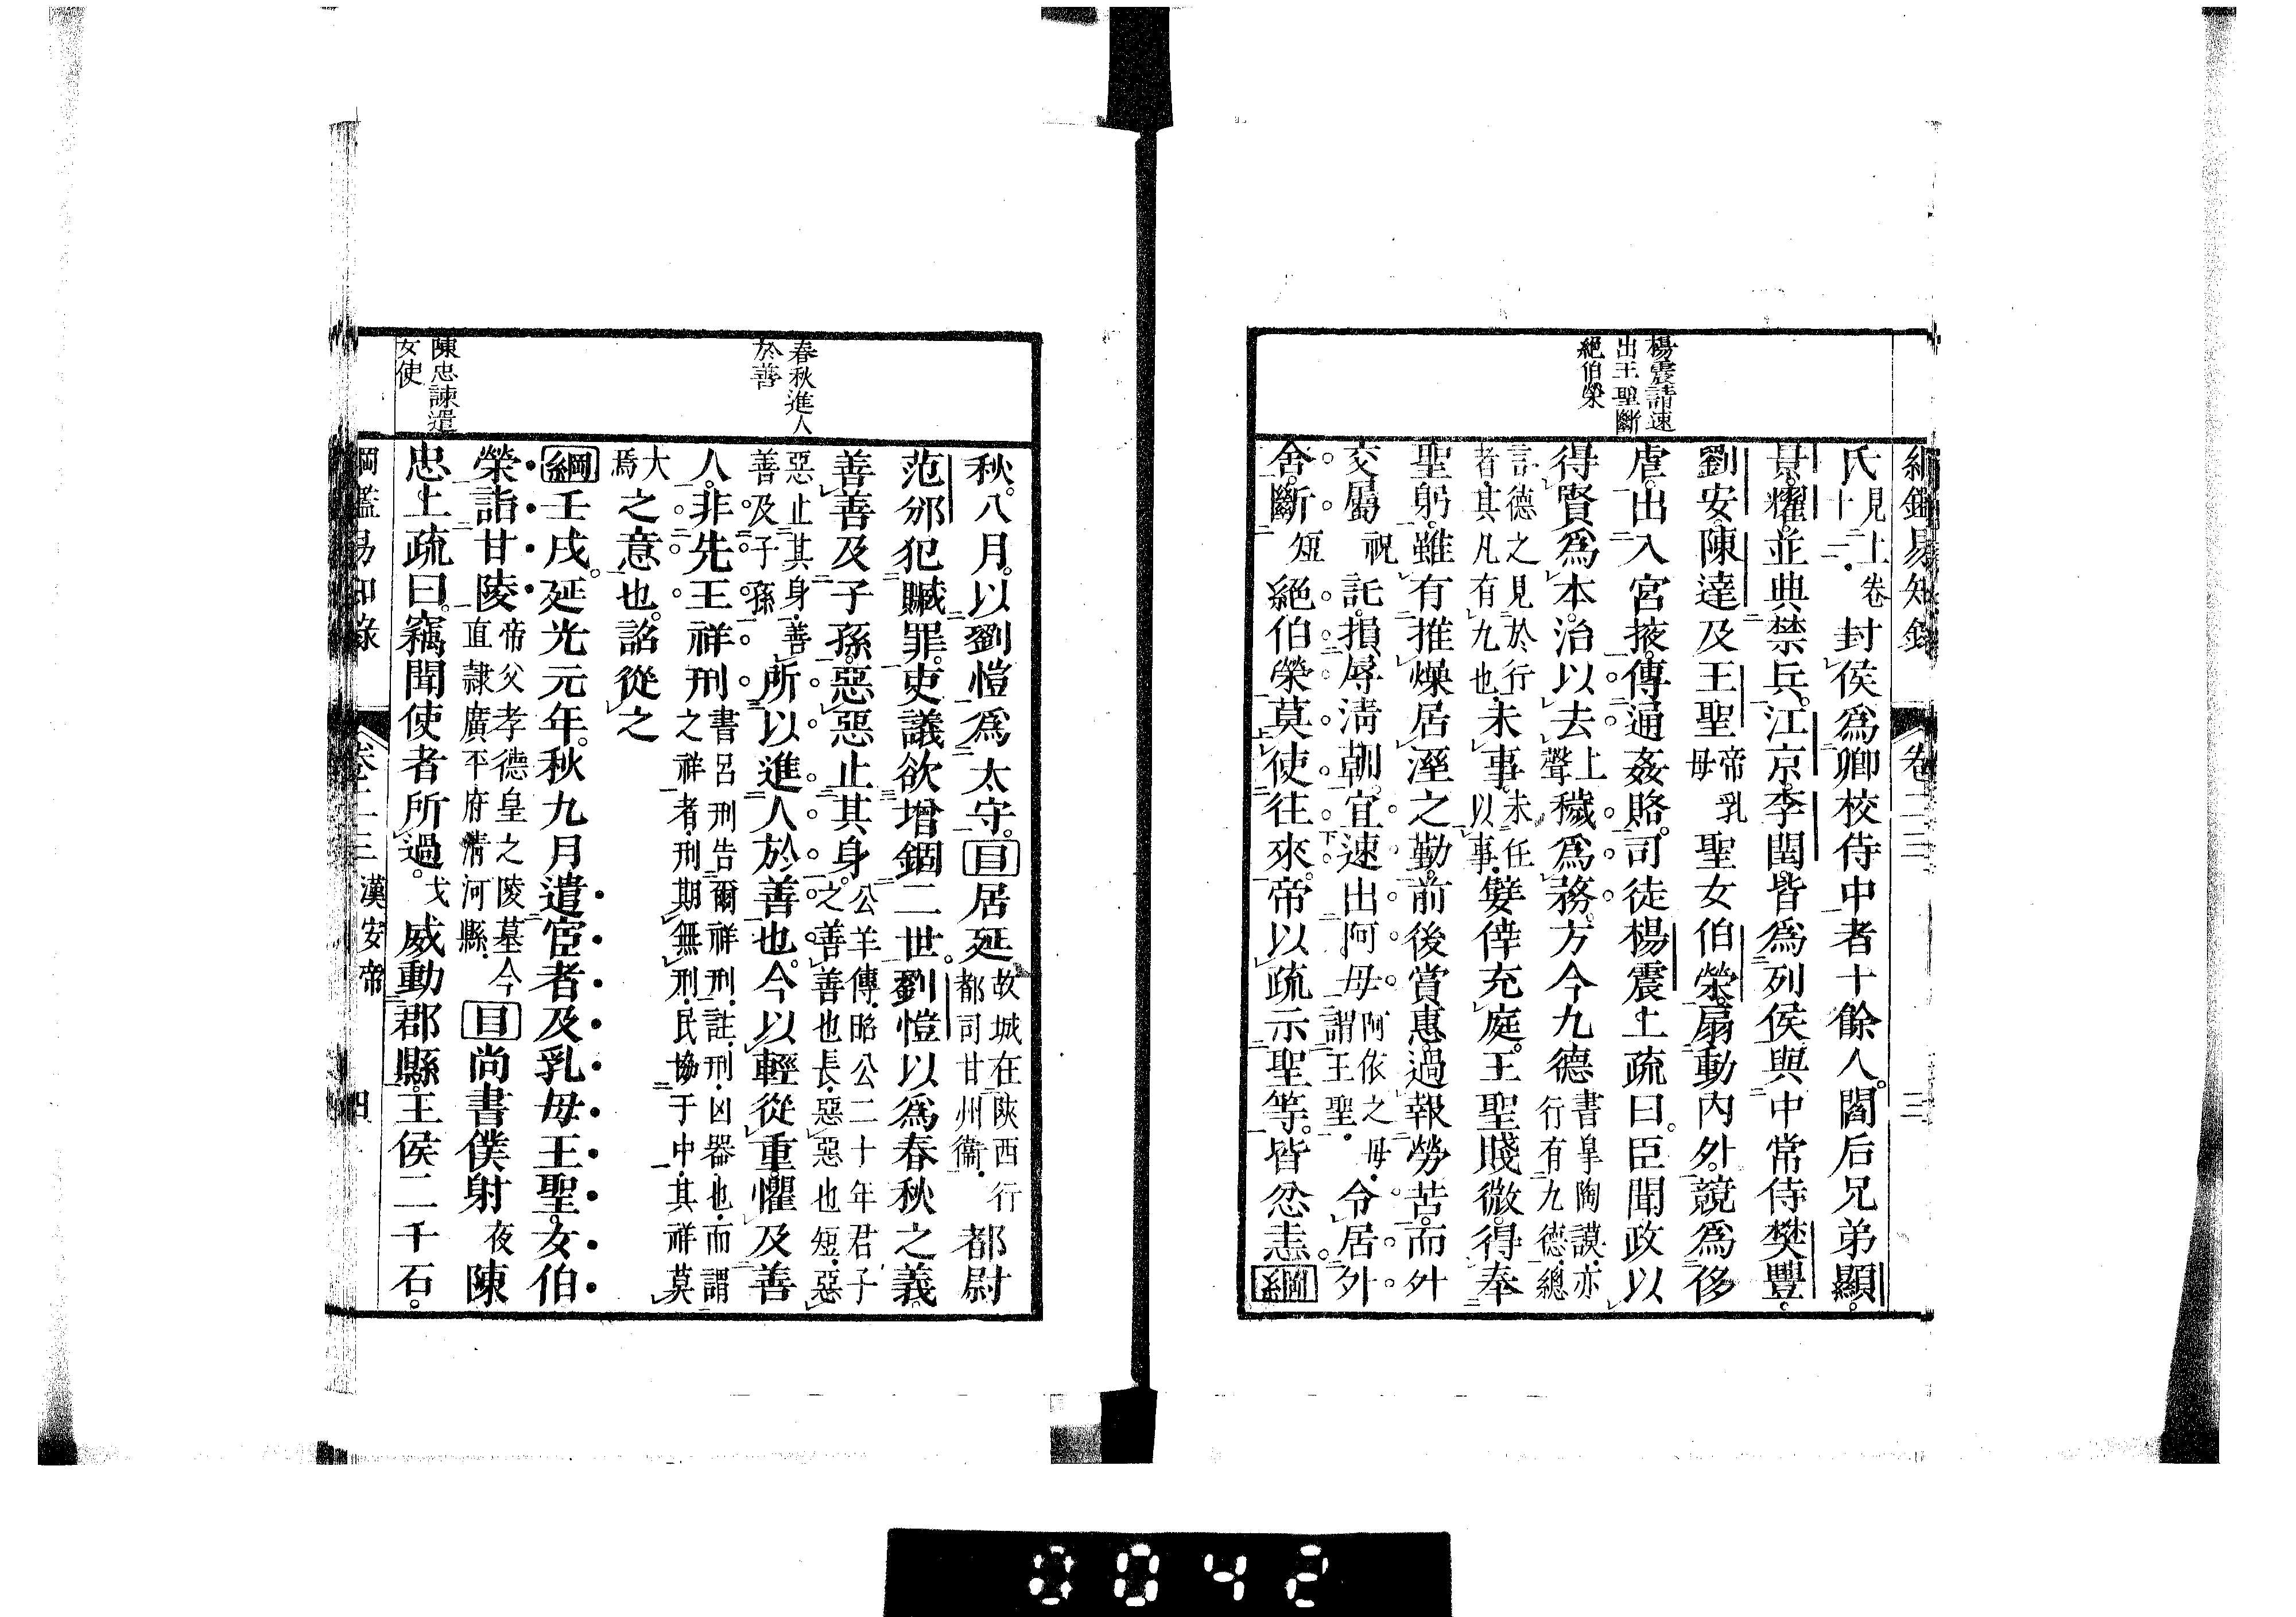 綱鑑易知錄 卷二三 三
楊震請速
出王聖斷
絕伯榮
氏見上卷十二封侯爲卿校侍中者十餘人。閻后兄弟顯。
景。耀。並典禁兵。江京。李閏。皆爲列侯。與中常侍樊豐。
劉安。陳達及王聖帝乳母聖女伯榮。扇動內外。競爲侈
虐。出入宮掖。傳通姦賂。司徒楊震上疏曰。臣聞政以
得賢爲本。治以去上聲穢爲務。方今九德書皐陶謨。亦行有九德。總
言德之見於行者。其凡有九也。未事未任以事。嬖倖充庭。王聖賤微。得奉
聖躬。雖有推燥居溼之勤。前後賞惠。過報勞苦。而外
交屬祝託。損辱淸朝。宜速出阿母阿依之母。謂王聖。令居外
舍。斷短絕伯榮。莫使往來。帝以疏示聖等。皆忿恚。綱
春秋進人
於善
陳忠諫遣
女使
秋。八月。以劉愷爲太守。目居延故城在陝西行都司甘州衞。都尉
范邠犯贓罪。吏議欲增錮二世。劉愷以爲春秋之義
善善及子孫。惡惡止其身。公羊傳。昭公二十年君子之善善也長。惡惡也短。惡
惡止其身。善善及子孫。所以進人於善也。今以輕從重。懼及善
人。非先王祥刑書呂刑告爾祥刑。註。刑。凶器也。而謂之祥者。刑期無刑。民協于中。其祥莫
大焉之意也。詔從之
綱壬戌。延光元年。秋九月遣宦者及乳母王聖。女伯
榮詣甘陵帝父孝德皇之陵墓。今直隸廣平府淸河縣。目尚書僕射夜陳
忠上疏曰。竊聞使者所過。戈威動郡縣。王侯二千石。
綱鑑易知錄 卷二三 漢安帝 四
0042